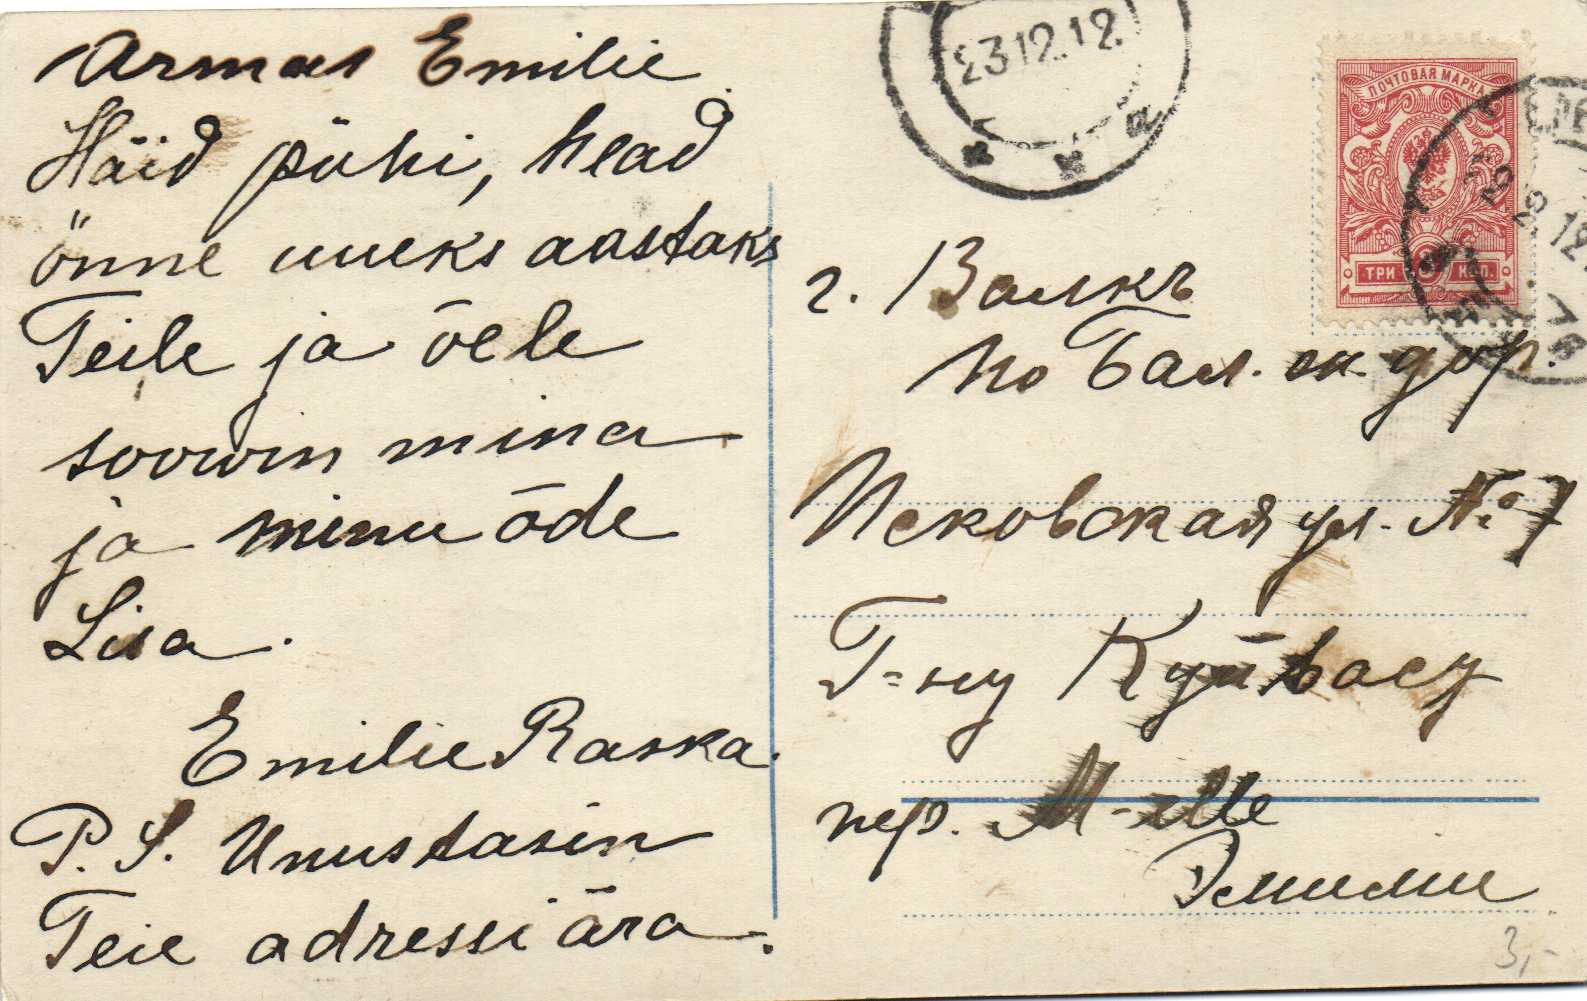 Armas Emilie.
Häid pühi, head
önne uueks aastaks
Teile ja õele
soowin mina
ja minu õde
Lisa.
Emilie Raska.
P. S. Unustasin
Teie adressi ära.
23 12.12.
ПОЧТОВАЯ МАРКА
ТРИ 3 КОП.
г. Валкъ
по Бал. ж. дор.
Псковская ул. № 7
Г-ну Куйвасу
пер. M-elle
Эмилии
3,-